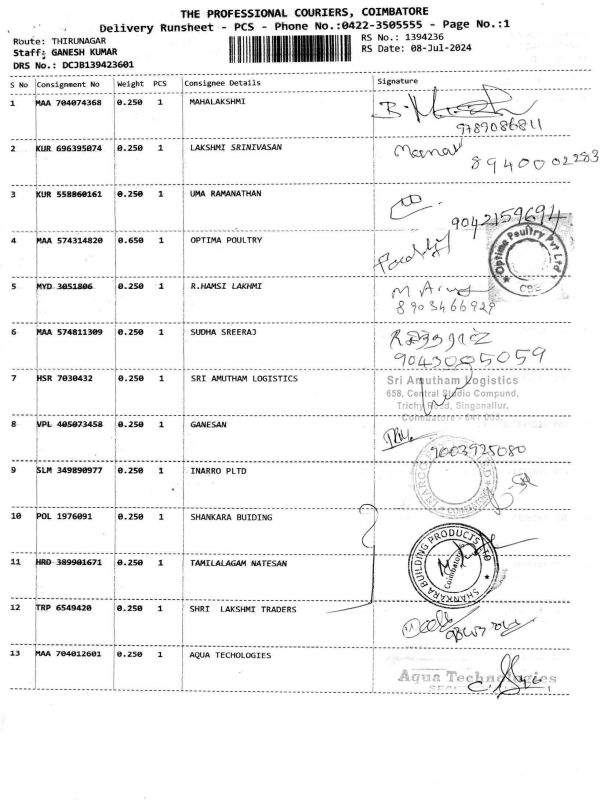 THE PROFESSIONAL COURIERS, COIMBATORE
Delivery Runsheet - PCS - Phone No.:0422-3505555 - Page No.:1
Route: THIRUNAGAR RS No.: 1394236
Staff: GANESH KUMAR RS Date: 08-Jul-2024
DRS No.: DCJB139423601
S No Consignment No Weight PCS Consignee Details Signature
1 MAA 704074368 0.250 1 MAHALAKSHMI
9789086811
2 KUR 696395074 0.250 1 LAKSHMI SRINIVASAN
8940002283
3 KUR 558860161 0.250 1 UMA RAMANATHAN
9042159694
4 MAA 574314820 0.650 1 OPTIMA POULTRY
Optima Poultry Pvt Ltd
CBE
5 MYD 3051806 0.250 1 R.HAMSI LAKHMI
8903466929
6 MAA 574811309 0.250 1 SUDHA SREERAJ
9043095059
7 HSR 7030432 0.250 1 SRI AMUTHAM LOGISTICS
Sri Amutham Logistics
658, Central Studio Compund,
Trichy Road, Singanallur,
Coimbatore - 641 005.
8 VPL 405073458 0.250 1 GANESAN
9003925080
9 SLM 349890977 0.250 1 INARRO PLTD
COIMBATORE
10 POL 1976091 0.250 1 SHANKARA BUIDING
SHANKARA BUILDING PRODUCTS LTD
Coimbatore
11 HRD 389901671 0.250 1 TAMILALAGAM NATESAN
12 TRP 6549420 0.250 1 SHRI LAKSHMI TRADERS
13 MAA 704012601 0.250 1 AQUA TECHOLOGIES
Aqua Technologies